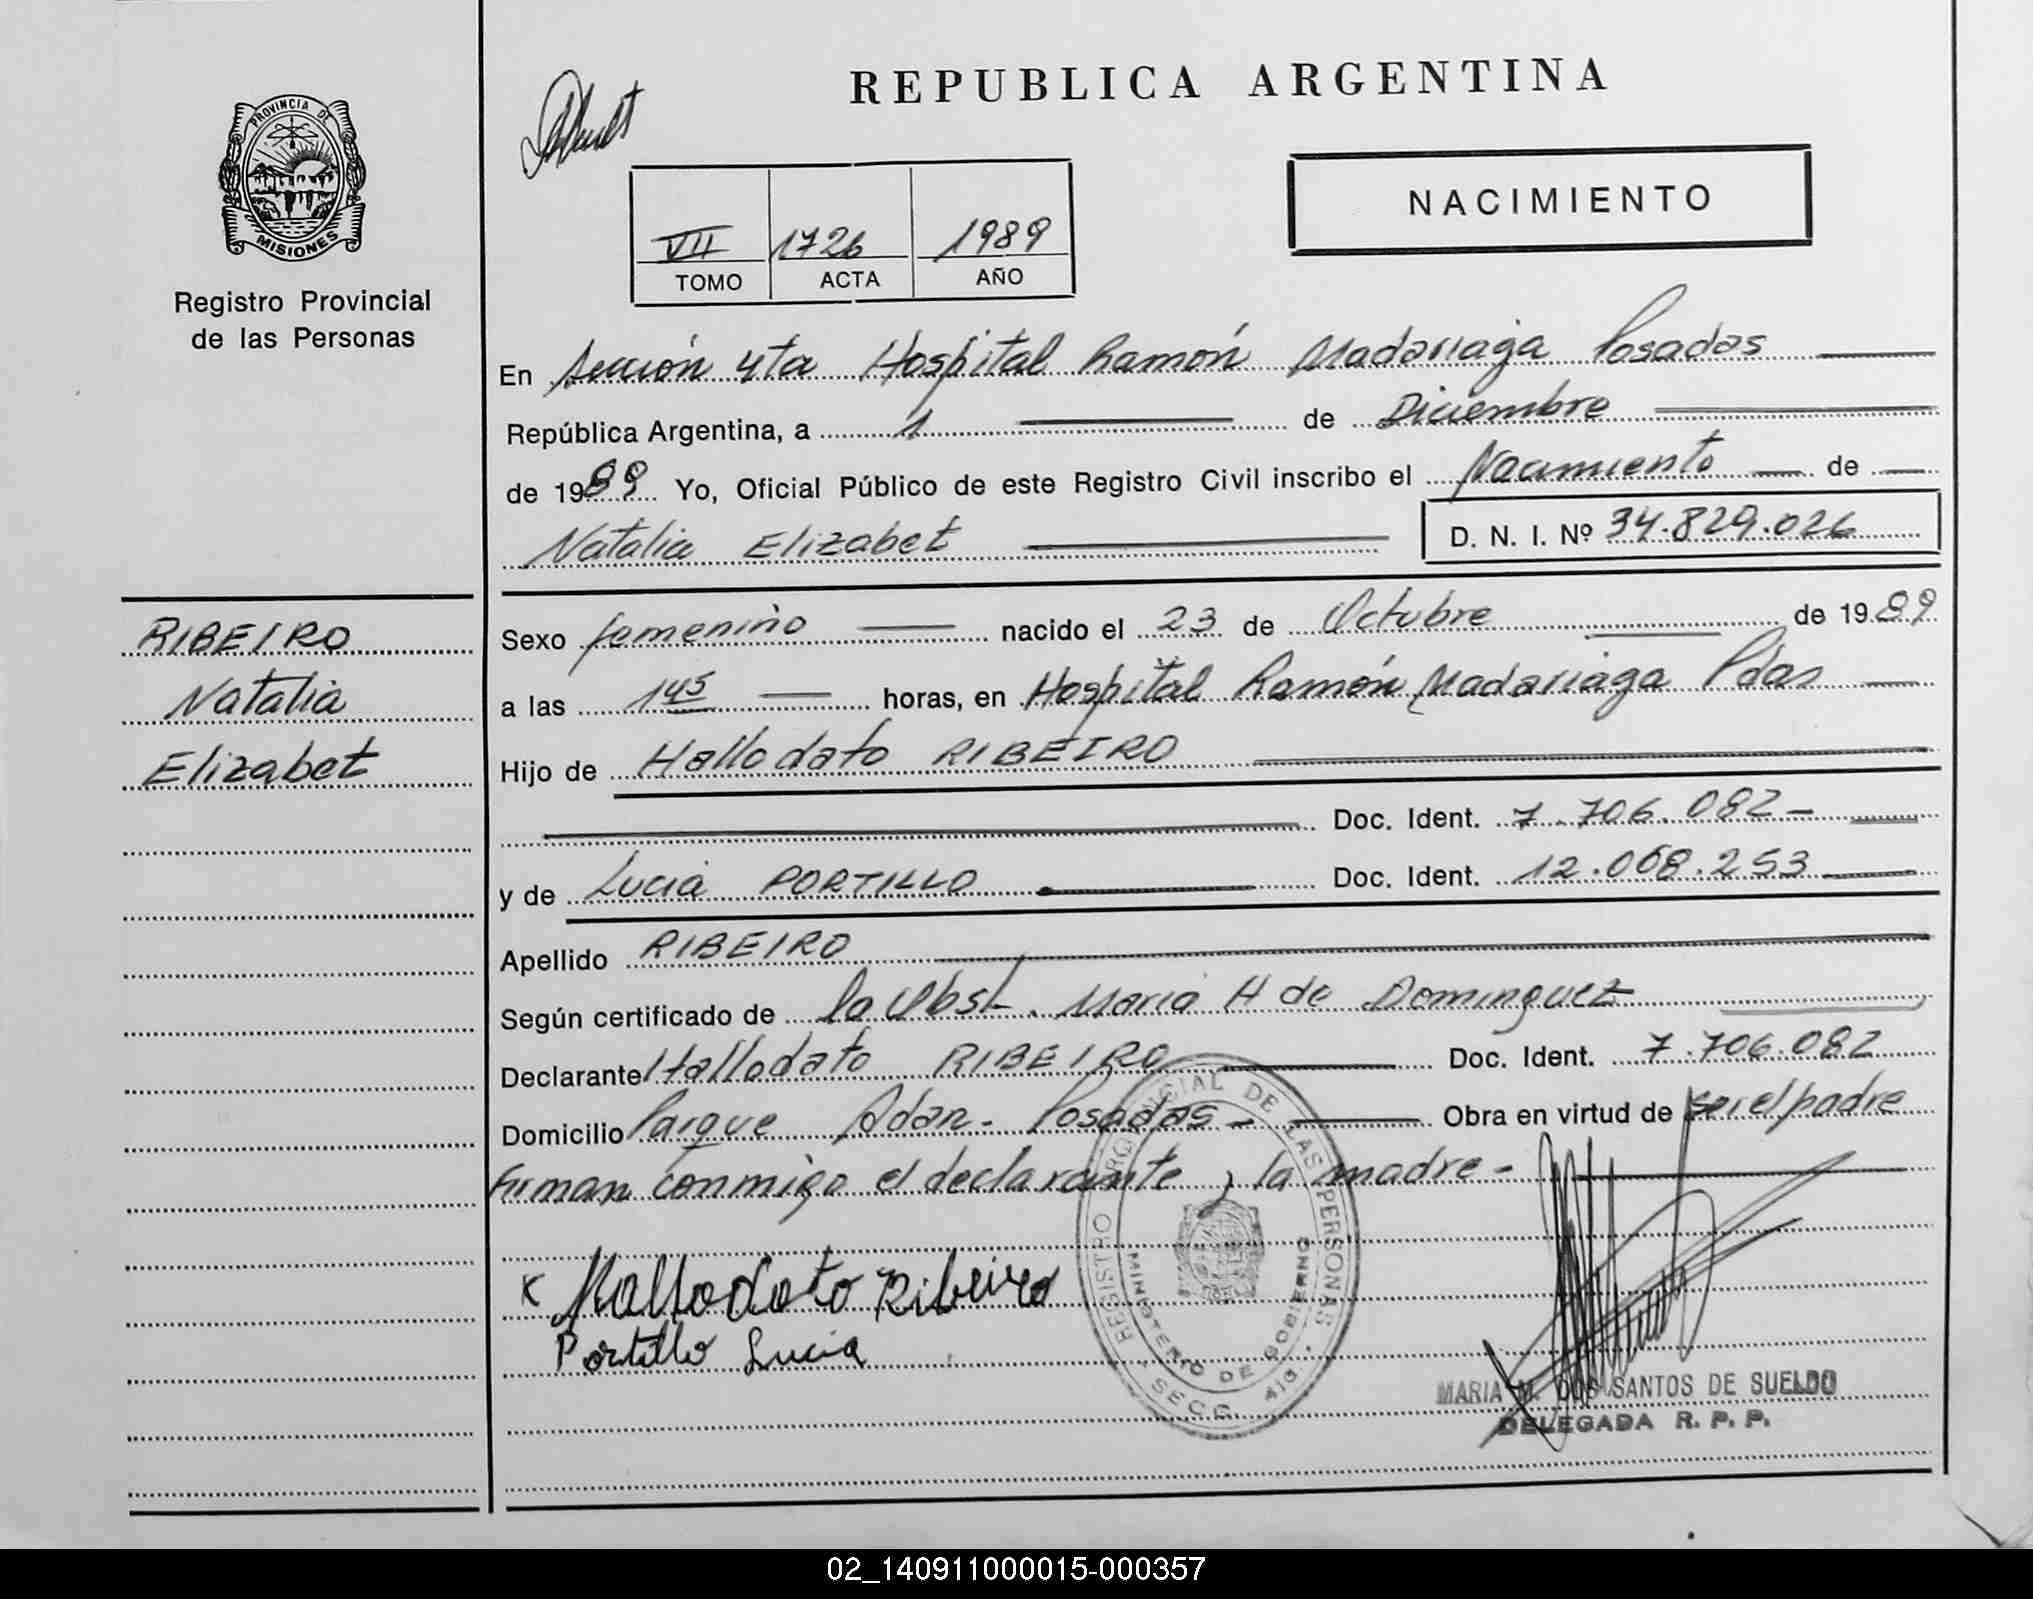 REPUBLICA ARGENTINA
PROVINCIA DE
MISIONES
Registro Provincial
de las Personas
NACIMIENTO
VII 1726 1989
TOMO ACTA AÑO
En Sección 4ta Hospital Ramón Madariaga Posadas
República Argentina, a 1 de Diciembre
de 1989 Yo, Oficial Público de este Registro Civil inscribo el Nacimiento de
Natalia Elizabet D. N. I. Nº 34.829.026
RIBEIRO
Natalia
Elizabet
Sexo femenino nacido el 23 de Octubre de 1989
a las 145 horas, en Hospital Ramón Madariaga Pdas
Hijo de Hallodato RIBEIRO
Doc. Ident. 7.706.082-
y de Lucia PORTILLO Doc. Ident. 12.068.253
Apellido RIBEIRO
Según certificado de la Obst. Maria H de Dominguez
Declarante Hallodato RIBEIRO Doc. Ident. 7.706.082
Domicilio Parque Adan - Posadas - Obra en virtud de ser el padre
firman conmigo el declarante y la madre -
x Hallodato Ribeiro
Portillo Lucia
REGISTRO PROVINCIAL DE LAS PERSONAS
MINISTERIO DE GOBIERNO
SECC. 4ta
MARIA M. DOS SANTOS DE SUELDO
DELEGADA R. P. P.
02_140911000015-000357